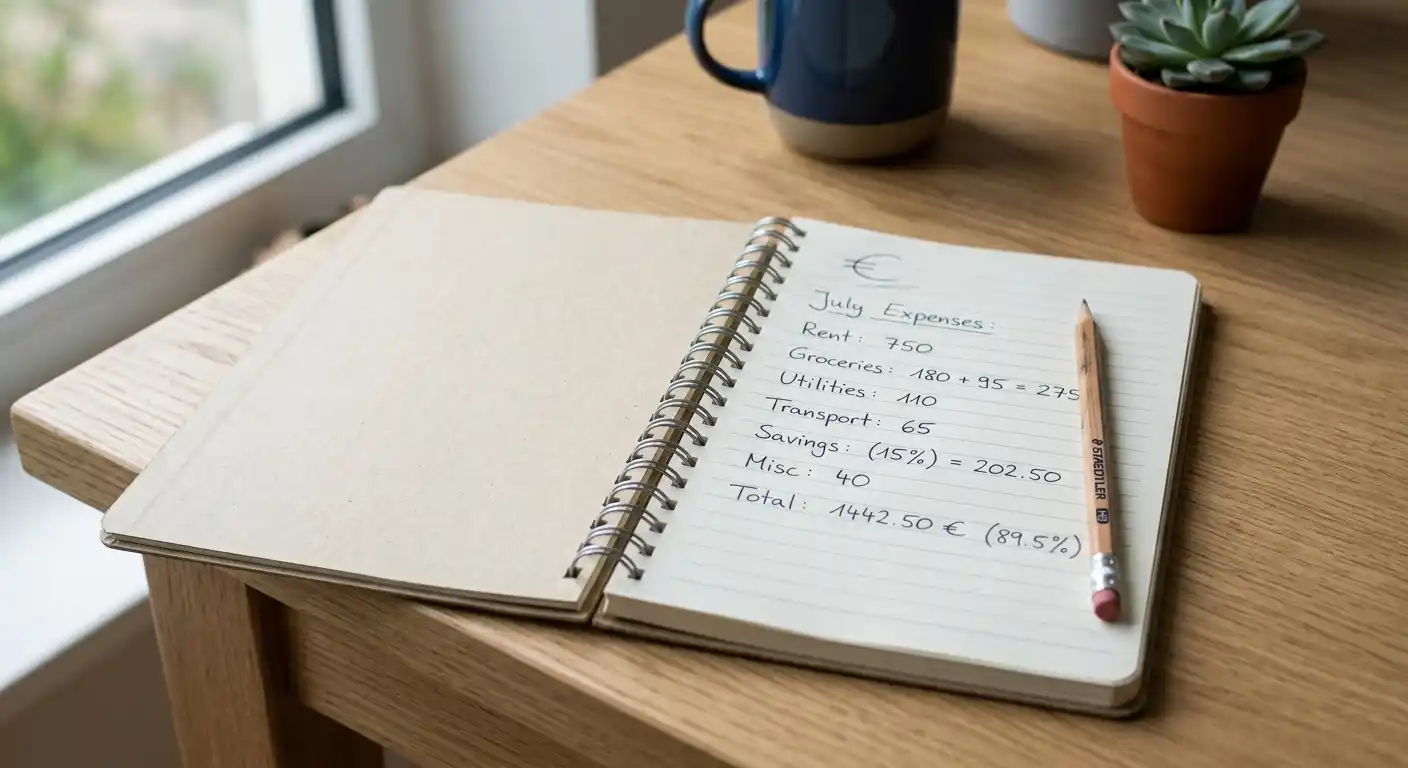 €
July Expenses:
Rent: 750
Groceries: 180 + 95 = 275
Utilities: 110
Transport: 65
Savings: (15%) = 202.50
Misc: 40
Total: 1442.50 € (89.5%)
STAEDTLER HB